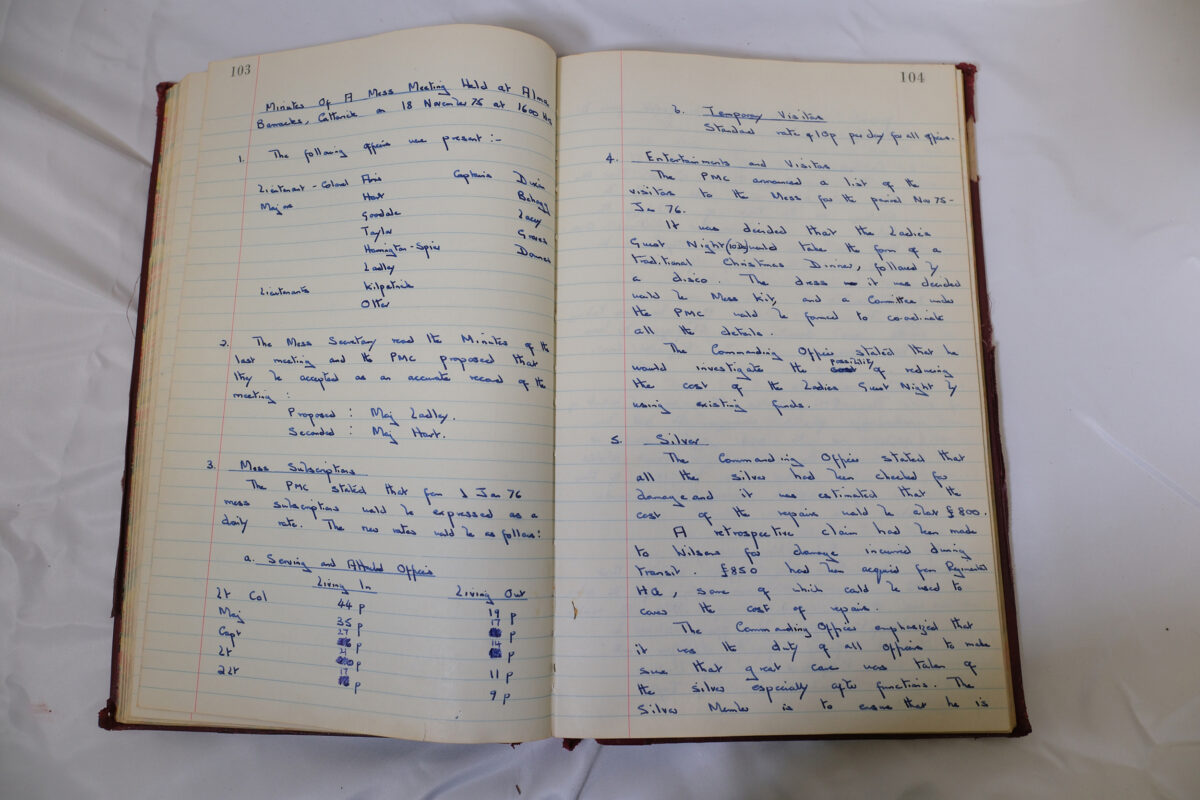 103
Minutes Of A Mess Meeting Held at Alma
Barracks, Catterick on 18 November 75 at 1600 Hrs
1. The following officers were present :-
Lieutenant-Colonel Captains
Majors Hart
Goodale Lacey
Taylor
Harrington-Spier
Ladley
Lieutenants Kilpatrick
Otter
2. The Mess Secretary read the Minutes of the
last meeting and the PMC proposed that
they be accepted as an accurate record of the
meeting :
Proposed : Maj Ladley.
Seconded : Maj Hart.
3. Mess Subscriptions
The PMC stated that from 1 Jan 76
mess subscriptions would be expressed as a
daily rate. The new rates would be as follows:
a. Serving and Attached Officers
Living In Living Out
Lt Col 44 p 19 p
Maj 35 p 17 p
Capt 27 p 14 p
Lt p 11 p
2Lt 17 p 9 p
104
b. Temporary Visitors
Standard rate of 10p per day for all officers.
4. Entertainments and Visitors
The PMC announced a list of the
visitors to the Mess for the period Nov 75-
Jan 76.
It was decided that the Ladies
Guest Night would take the form of a
traditional Christmas Dinner, followed by
a disco. The dress it was decided
would be Mess Kit, and a Committee under
the PMC would be formed to co-ordinate
all the details.
The Commanding Officer stated that he
would investigate the possibility of reducing
the cost of the Ladies Guest Night by
using existing funds.
5. Silver
The Commanding Officer stated that
all the silver had been checked for
damage and it was estimated that the
cost of the repairs would be about £800.
A retrospective claim had been made
to Wilsons for damage incurred during
transit. £850 had been acquired from Regimental
HQ, some of which could be used to
cover the cost of repairs.
The Commanding Officer emphasized that
it was the duty of all Officers to make
sure that great care was taken of
the silver especially after functions. The
Silver Member is to ensure that he is